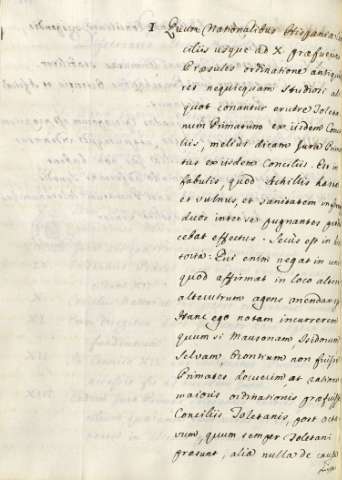 I Quum Nationalibus Hispaniæ
ciliis usque ad X. præfuerint
Præsules ordinatione antiqui
res nequicquam studiosi ali
quot conantur eruere Toleta
num Primatum ex iisdem Conci
liis, melius dicam Jura Prima
tus ex iisdem Conciliis. Est in
fabulis, quod Achillis hasta
et vulnus, et sanitatem
duos inter se pugnantes
cebat effectus. Secus est in his
toria. Qui enim negat in uno
quod affirmat in loco altero
alterutrum agens mendacij
Hanc ego notam incurrerem
quum si Mauronam, Isidorum
Selvam, Orontium non fuisse
Primates docuerim at ratione
maioris ordinationis præfuisse
Conciliis Toletanis, post octa
vum, quum semper Toletani
præsunt, alia nulla de causa